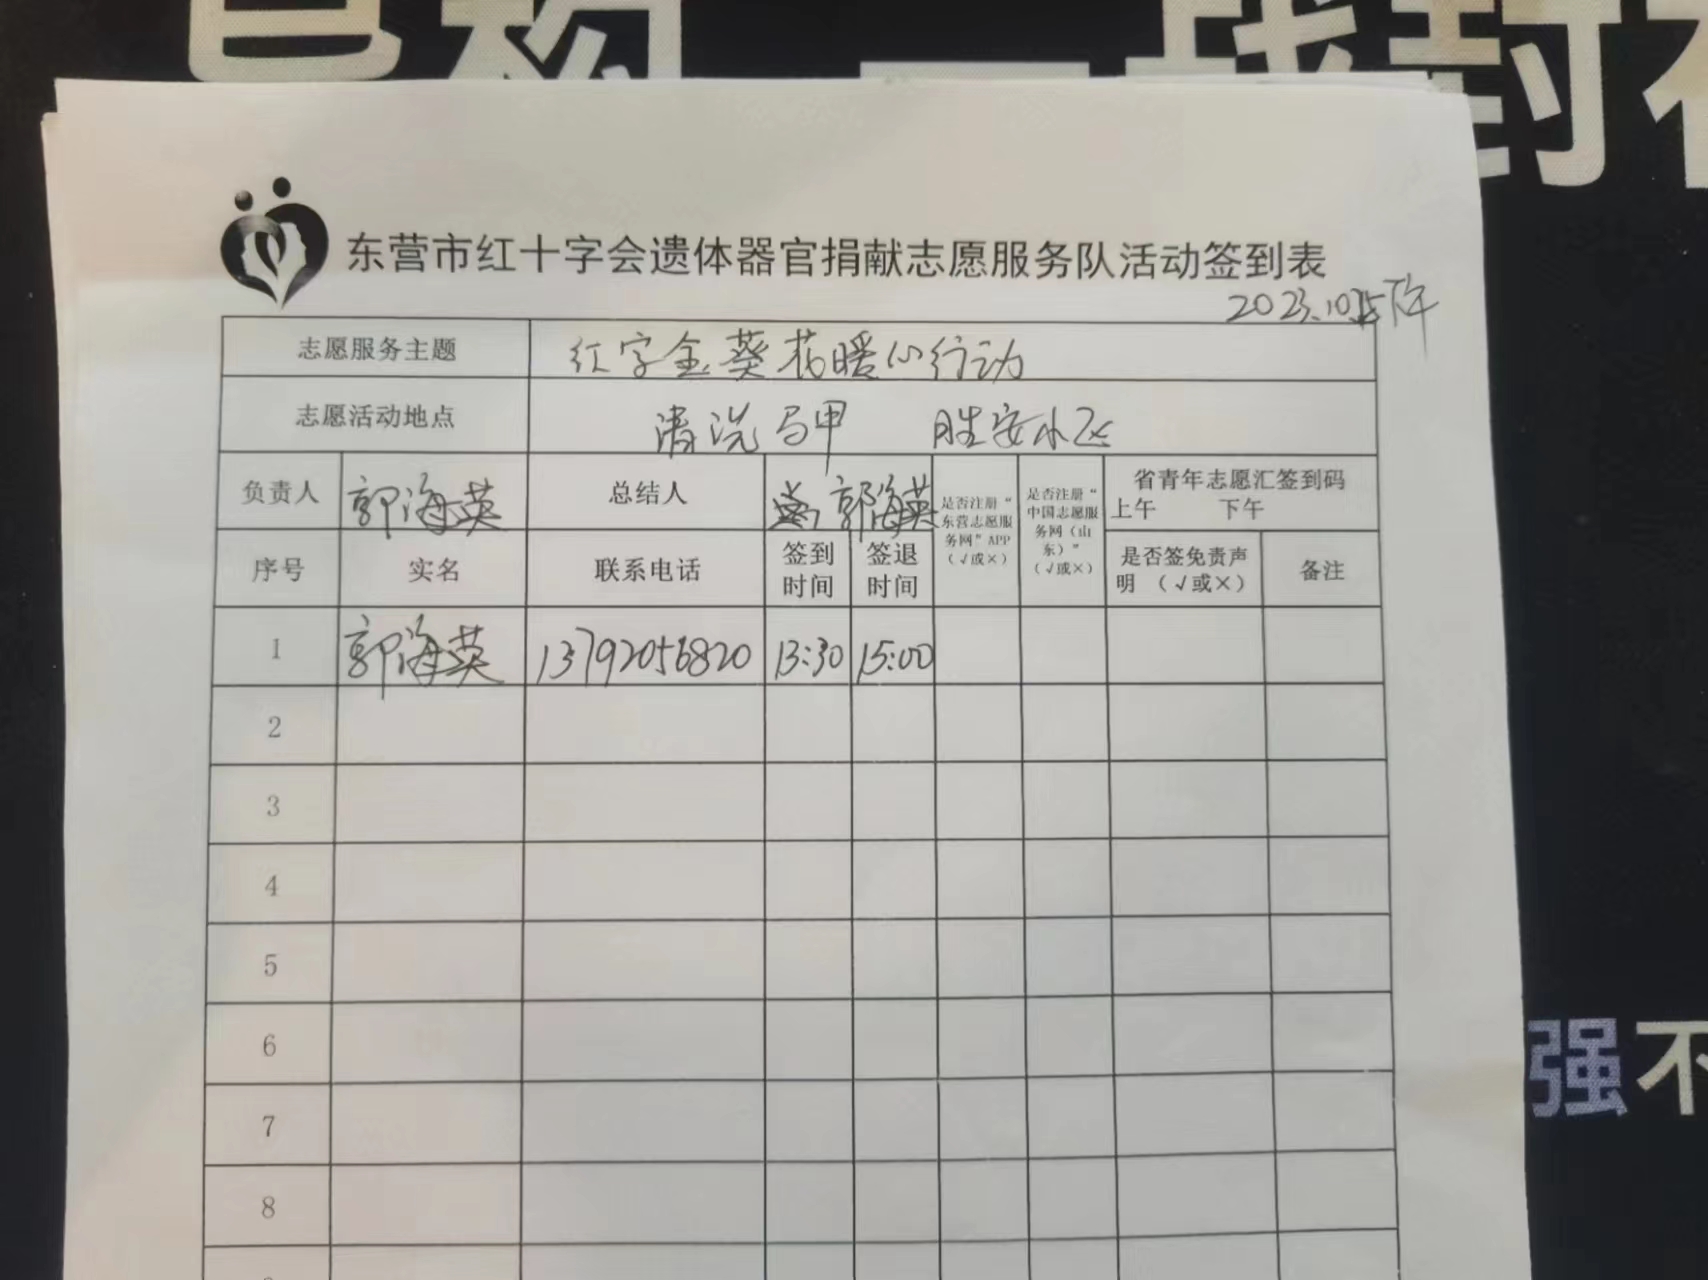 一战封神
东营市红十字会遗体器官捐献志愿服务队活动签到表
2023.10.15下午
志愿服务主题 红字金葵花暖心行动
志愿活动地点 清洗马甲 胜安小区
负责人 郭海英 总结人 郭海英 是否注册“东营志愿服务网”APP（√或×） 是否注册“中国志愿服务网（山东）”（√或×） 省青年志愿汇签到码 上午 下午
序号 实名 联系电话 签到时间 签退时间 是否签免责声明 （√或×） 备注
1 郭海英 13792056820 13:30 15:00
2
3
4
5
6
7
8
强不